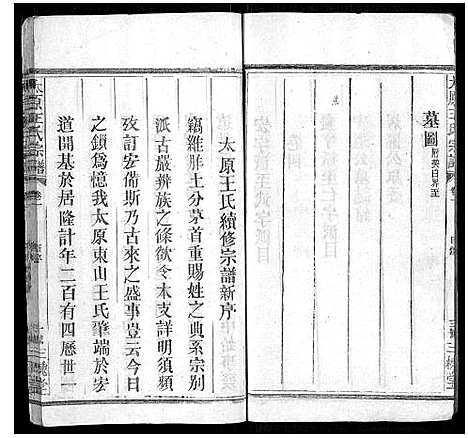 墓圖
太原王氏宗譜
太原王氏續修宗譜新序
竊維胙土分茅首重賜姓之典系宗別
派古嚴辨族之條欲令本支詳明須類
攷訂宏備斯乃古來之盛事豈云今日
之鎖爲憶我太原東山王氏肇端於宏
道開基於居隆計年二百有四歷世一
太原王氏宗譜
三槐堂